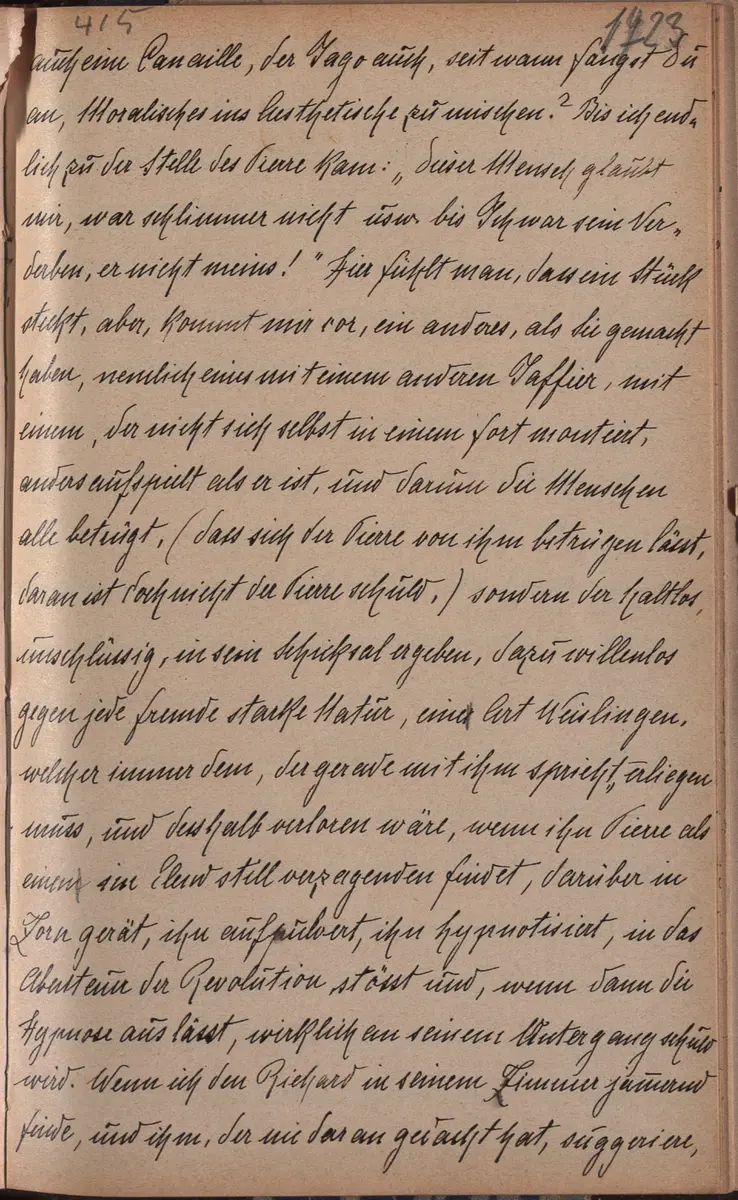 415
1723
auch eine Canaille, der Jago auch, seit wann fängst Du
an, Moralisches ins Aesthetische zu mischen? Bis ich end„
lich zu der Stelle des Pierre kam: „dieser Mensch glaubt
mir, war schlimmer nicht usw. bis Ich war sein Ver„
derben, er nicht meins!" Hier fühlt man, dass ein Stück
steckt, aber, kommt mir vor, ein anderes, als Sie gemacht
haben, nemlich eines mit einem anderen Jaffier, mit
einem, der nicht sich selbst in einem fort montiert,
anders aufspielt als er ist, und darum die Menschen
alle betrügt, (dass sich der Pierre von ihm betrügen lässt,
daran ist doch nicht der Pierre schuld,) sondern der haltlos,
unschlüssig, in sein Schicksal ergeben, dazu willenlos
gegen jede fremde starke Natur, eine Art Weislingen,
welcher immer dem, der gerade mit ihm spricht, erliegen
muss, und desshalb verloren wäre, wenn ihn Pierre als
einen im Elend still verzagenden findet, darüber in
Zorn gerät, ihn aufpulvert, ihn hypnotisiert, in das
Abenteur der Revolution stösst und, wenn dann die
Hypnose auslässt, wirklich an seinem Untergang schuld
wird. Wenn ich den Richard in seinem Zimmer jamernd
finde, und ihm, der nie daran gedacht hat, suggeriere,